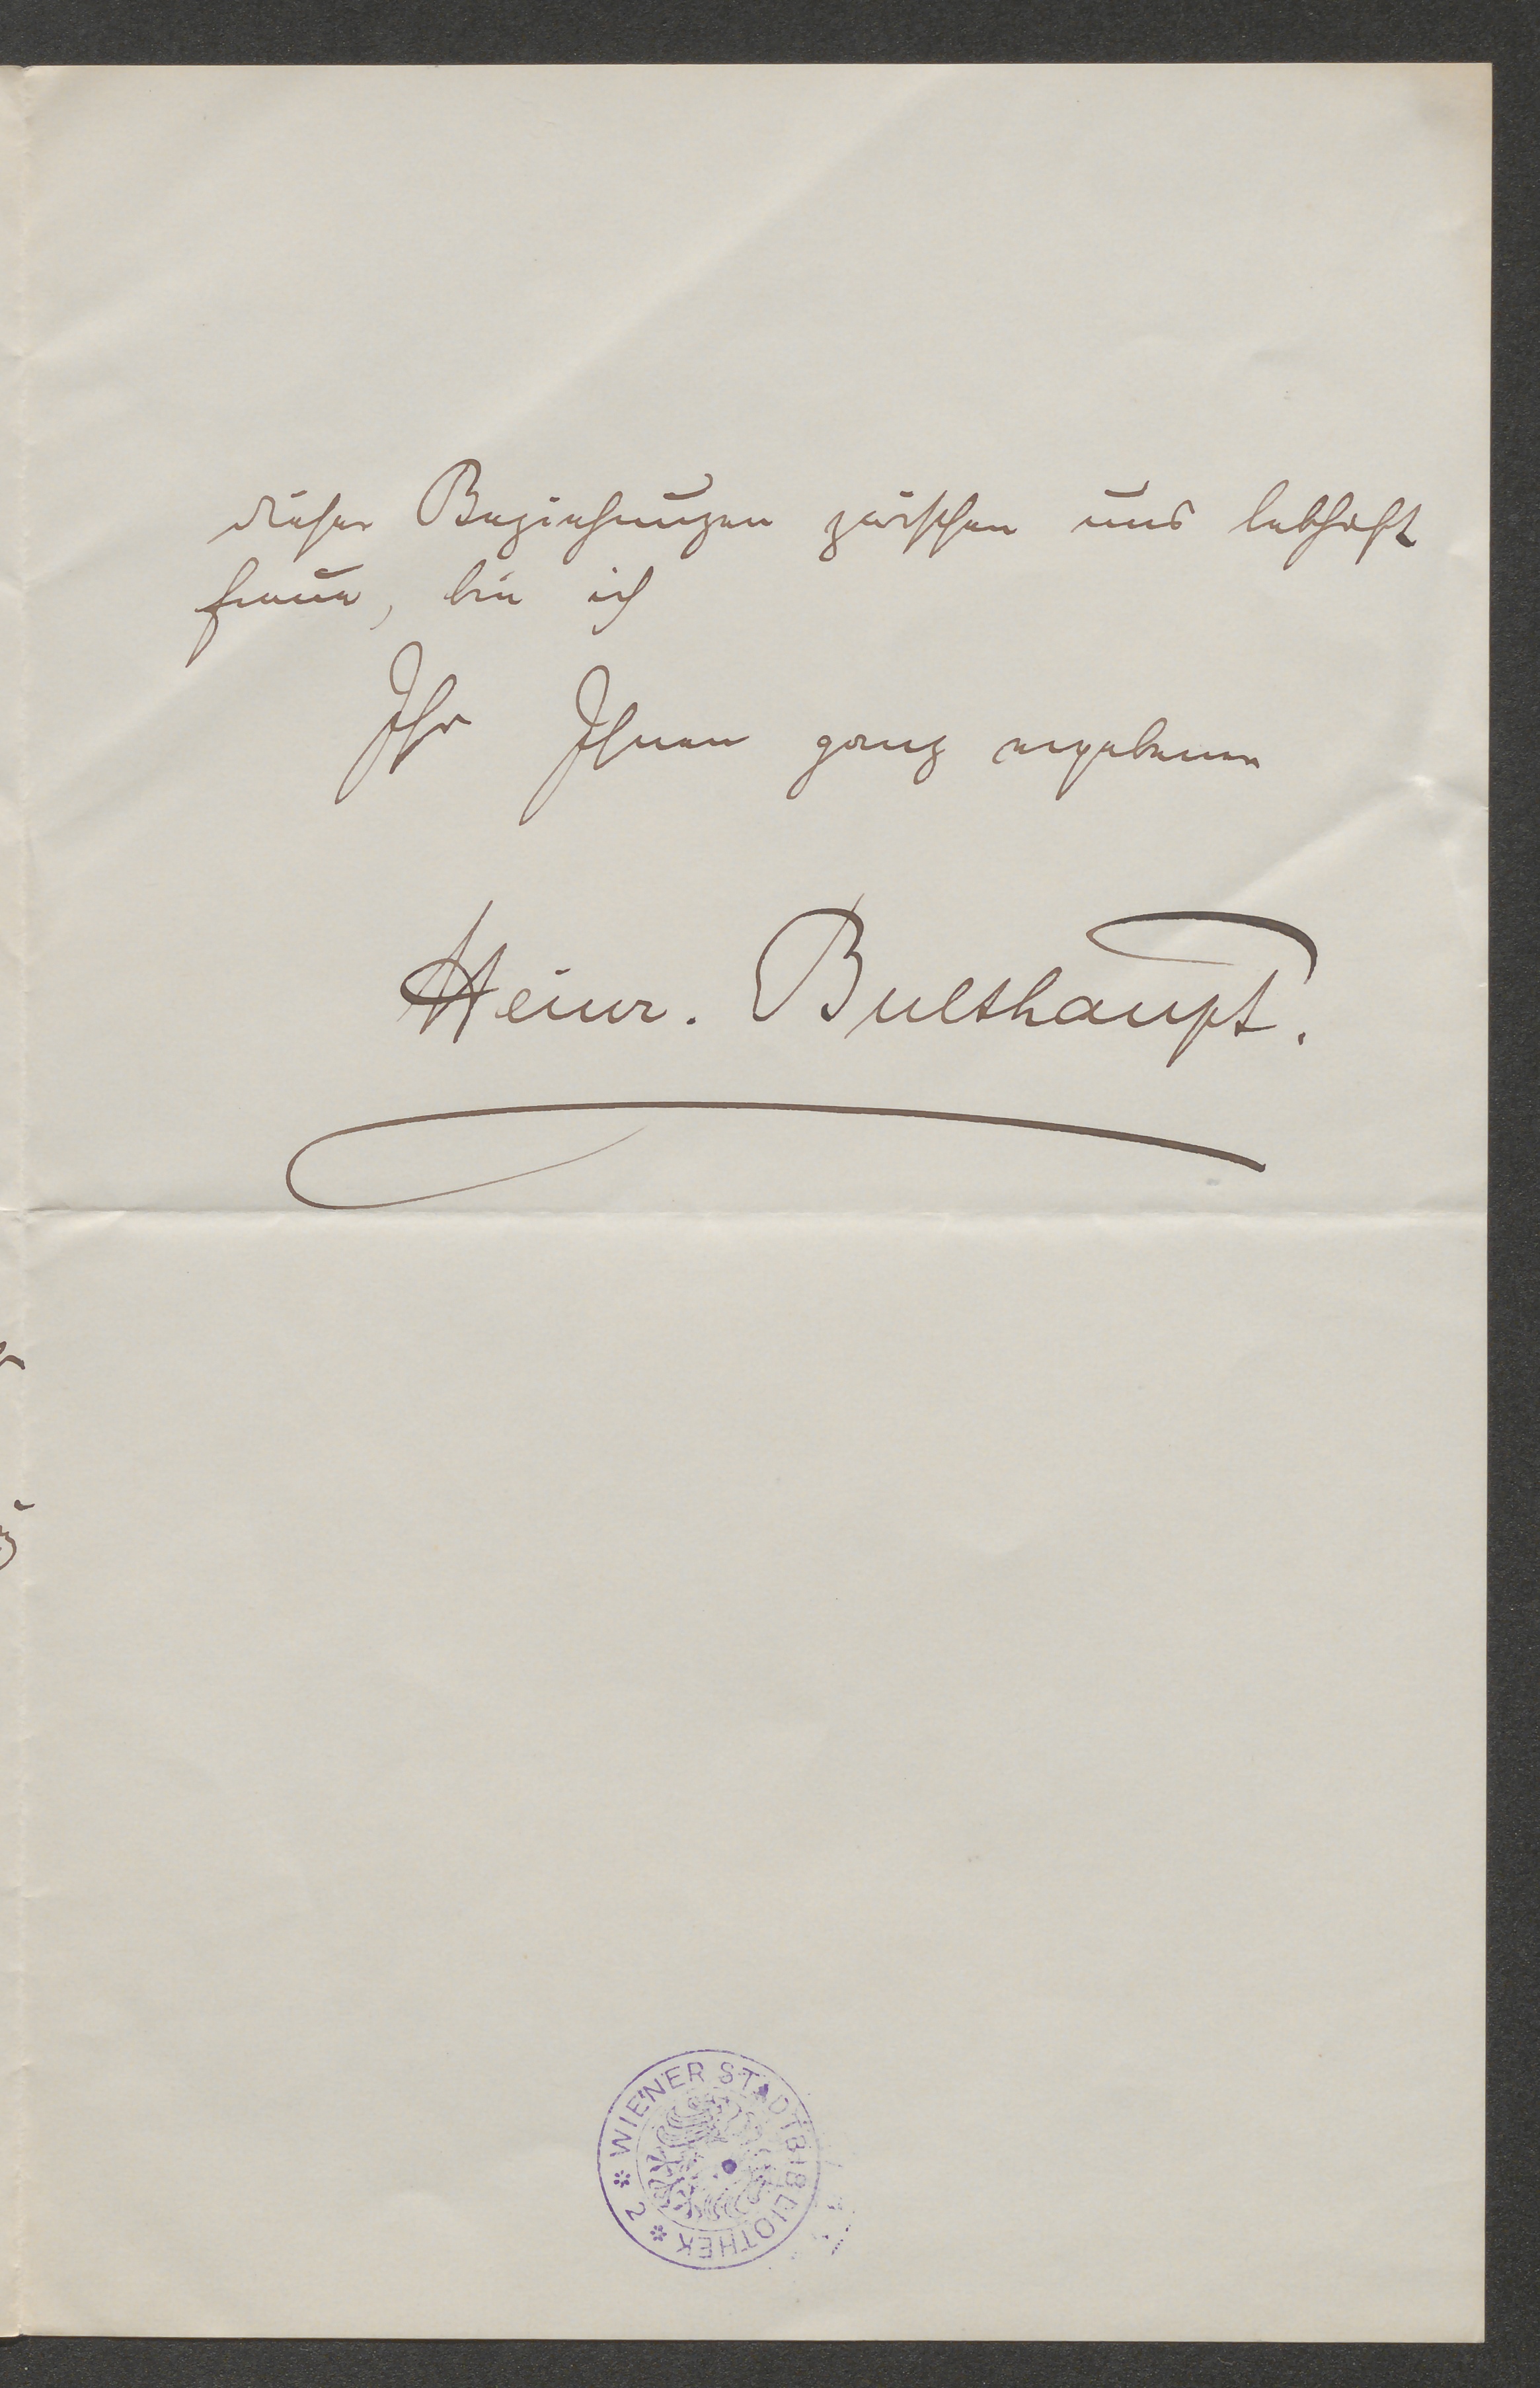 dieser Beziehungen zwischen uns lebhaft
freue, bin ich
Ihr Ihnen ganz ergebener
Heinr. Bulthaupt.
* WIENER STADTBIBLIOTHEK * 2